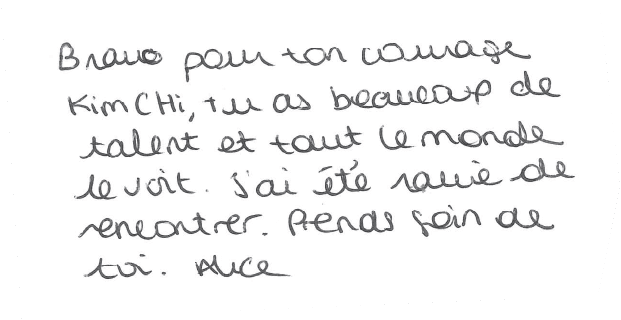 Bravo pour ton courage
Kim CHi, tu as beaucoup de
talent et tout le monde
le voit. J'ai été ravie de
rencontrer. Prends soin de
toi. Alice